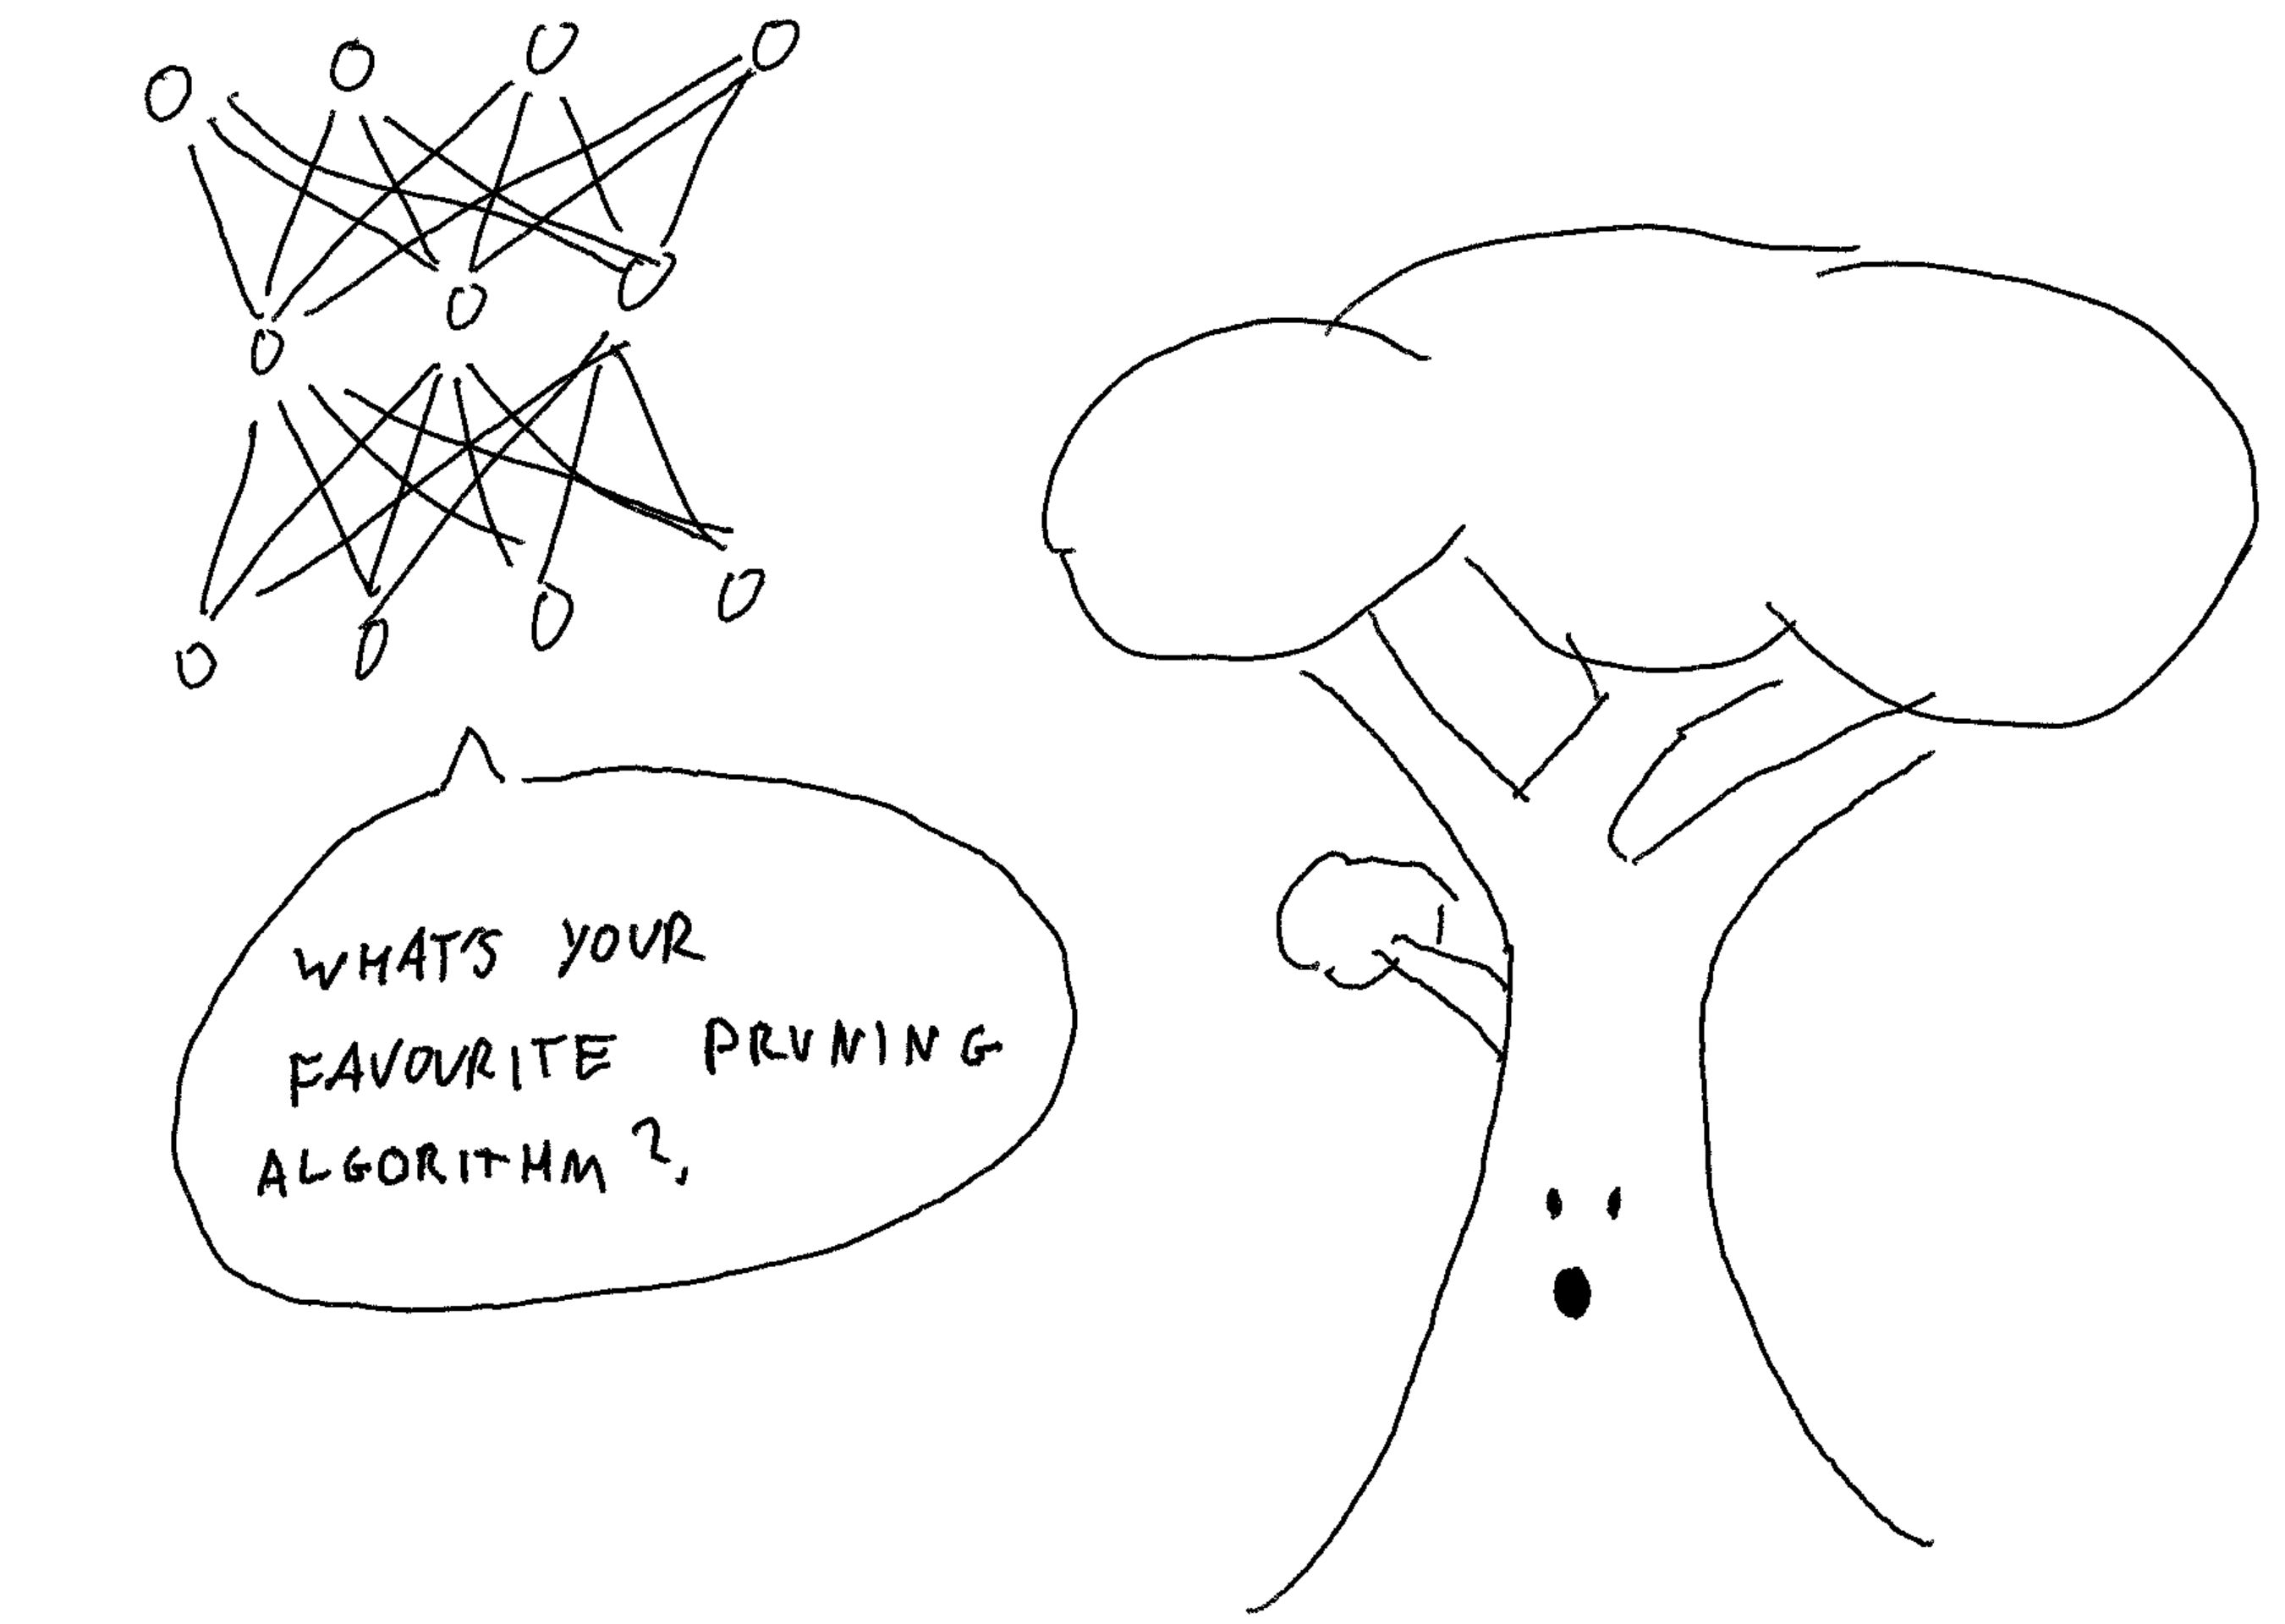 WHAT'S YOUR
FAVOURITE PRUNING
ALGORITHM?